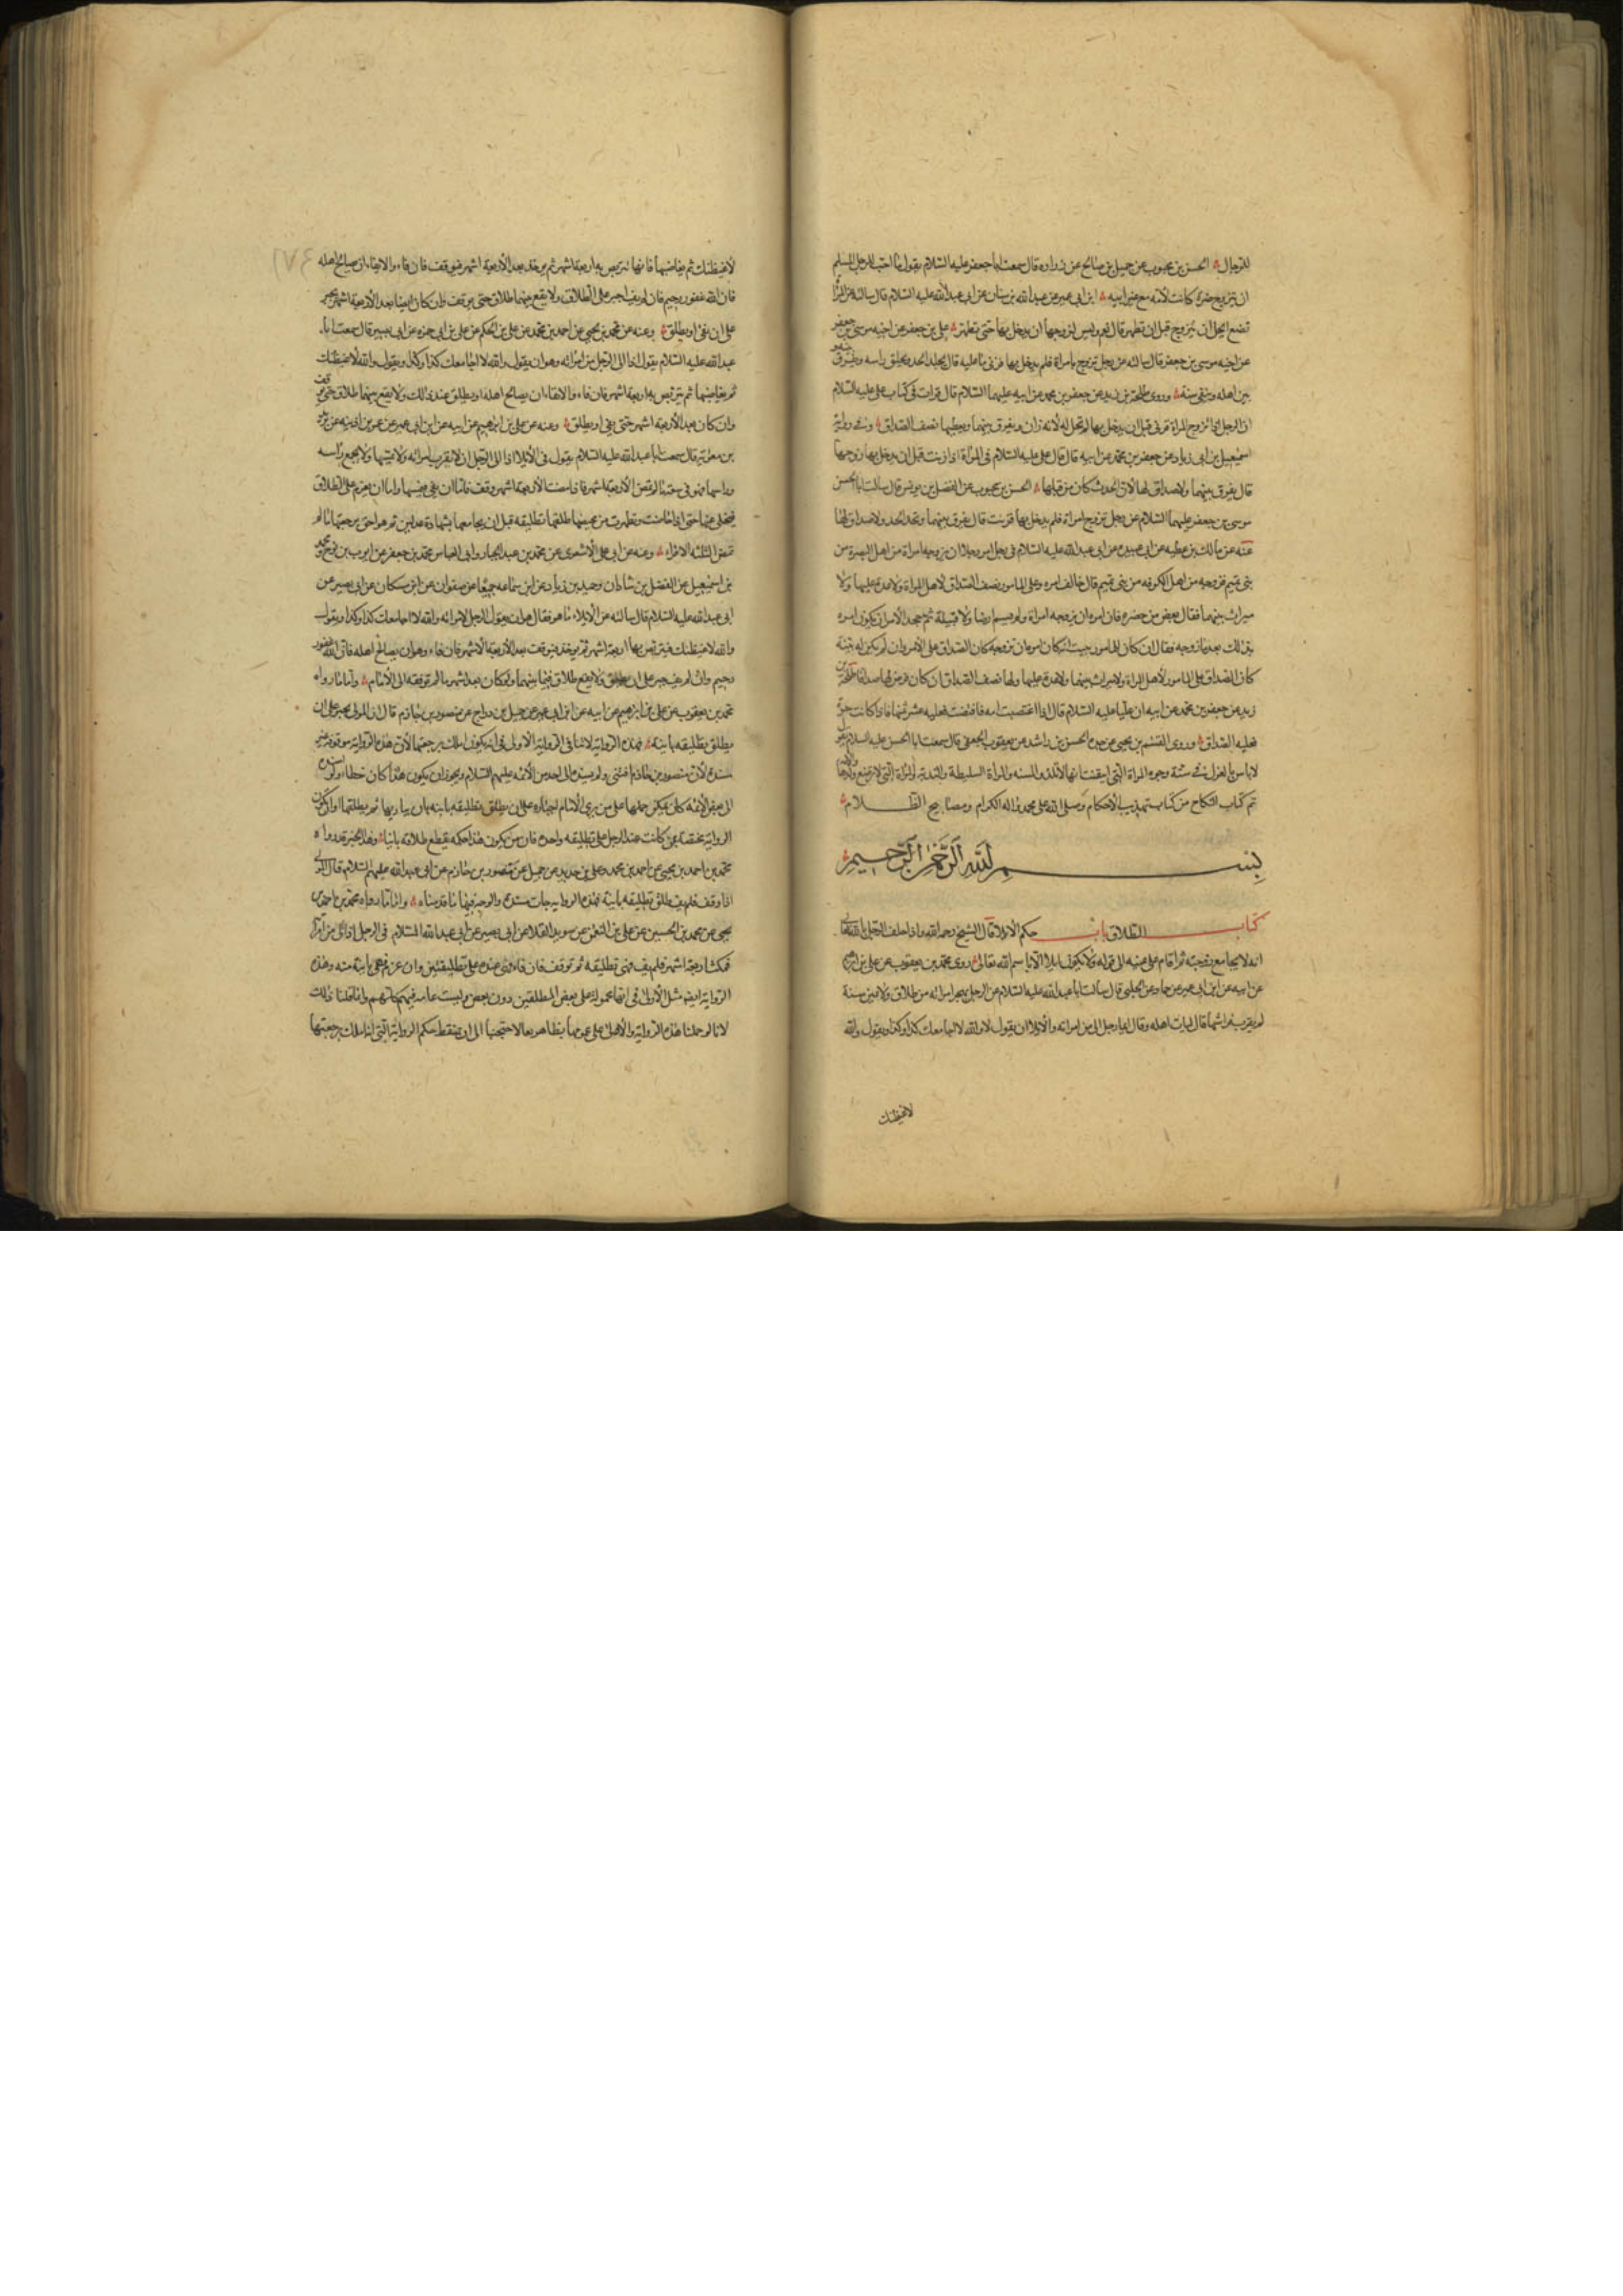 للرجال الحسن بن محبوب عن جميل بن صالح عن زراره قال سمعت ابا جعفر عليه السلام يقول ما احب للرجل المسلم
ان يتزوج ضرة كانت لامه مع غير ابيه ابن ابي عمير عن عبدالله بن سنان عن ابي عبدالله عليه السلام قال سالته عن المراة
تضع ايحل ان تتزوج قبل ان تطهر قال نعم وليس لزوجها ان يدخل بها حتى تطهر علي بن جعفر عن اخيه موسى بن جعفر
عن اخيه موسى بن جعفر قال سالته عن رجل تزوج بامراة فلم يدخل بها فزنى ما عليه قال يجلد الحد ويحلق راسه ويفرق بينه و
بين اهله وينفى سنة وروى طلحة بن زيد عن جعفر بن محمد عن ابيه عليهما السلام قال قرات في كتاب علي عليه السلام
ان الرجل اذا تزوج المراة فزنى قبل ان يدخل بها لم تحل له لانه زان ويفرق بينهما ويعطيها نصف الصداق وفي رواية
اسمعيل بن ابي زياد عن جعفر بن محمد عن ابيه قال قال علي عليه السلام في المراة اذا زنت قبل ان يدخل بها زوجها
قال يفرق بينهما ولا صداق لها لان الحدث كان من قبلها الحسن بن محبوب عن الفضل بن يونس قال سالت ابا الحسن
موسى بن جعفر عليهما السلام عن رجل تزوج امراة فلم يدخل بها فزنت قال يفرق بينهما وتحد الحد ولا صداق لها
عنه عن مالك بن عطيه عن ابي عبيده عن ابي عبدالله عليه السلام في رجل امر رجلا ان يزوجه امراة من اهل البصرة من
بني تميم فزوجه من اهل الكوفه من بني تميم قال خالف امره وعلى المامور نصف الصداق لاهل المراة ولا عدة عليها ولا
ميراث بينهما فقال بعض من حضره فان امره ان يزوجه امراة ولم يسم ارضا ولا قبيلة ثم جحد الامر ان يكون امره
بذلك بعد ما زوجه فقال ان كان للمامور بينة انه كان امره ان يزوجه كان الصداق على الامر وان لم يكن له بينة
كان الصداق على المامور لاهل المراة ولا ميراث بينهما ولا عدة عليها ولها نصف الصداق ان كان فرض لها صداقا طلحة بن
زيد عن جعفر بن محمد عن ابيه ان عليا عليه السلام قال اذا اغتصب امه فافتضت فعليه عشر ثمنها فاذا كانت حرة
فعليه الصداق وروى القسم بن يحيى عن جده الحسن بن راشد عن يعقوب الجعفي قال سمعت ابا الحسن عليه السلام يقول
لا باس بالعزل في ستة وجوه المراة التي ايقنت انها لا تلد والمسنه والمراة السليطة والبذية والمراة التي لا ترضع ولدها والامة
تم كتاب النكاح من كتاب تهذيب الاحكام وصلى الله على محمد واله الكرام ومصابيح الظلام
بسم الله الرحمن الرحيم
كتاب الطلاق باب حكم الايلا قال الشيخ رحمه الله واذا حلف الرجل بالله تعالى
انه لا يجامع زوجته ثم اقام على يمينه الى قوله ولا يكون ايلاء الا باسم الله تعالى روى محمد بن يعقوب عن علي بن ابرهيم
عن ابيه عن ابن ابي عمير عن حماد عن الحلبي قال سالت ابا عبدالله عليه السلام عن الرجل يهجر امراته من طلاق ولا يمين سنة
لم يقرب فراشها قال ليات اهله وقال ايما رجل الى من امراته والايلا ان يقول لا والله لا اجامعك كذا وكذا ويقول والله
لاغيظنك
لاغيظنك ثم يغاضبها فانها تتربص به اربعة اشهر ثم يوخذ بعد الاربعة اشهر فيوقف فان فاء والايفاء ان يصالح اهله
فان الله غفور رحيم فان لم يف اجبر على الطلاق ولا يقع بينهما طلاق حتى يوقف وان كان ايضا بعد الاربعة اشهر يجبر
على ان يفئ او يطلق وعنه عن محمد بن يحيى عن احمد بن محمد عن علي بن الحكم عن علي بن ابي حمزه عن ابي بصير قال سمعت ابا
عبدالله عليه السلام يقول اذا الى الرجل من امراته وهو ان يقول والله لا اجامعك كذا وكذا ويقول والله لاغيظنك
ثم يغاضبها ثم يتربص بها اربعة اشهر فان فاء والايفاء ان يصالح اهله او يطلق عند ذلك ولا يقع بينهما طلاق حتى يوقف
وان كان بعد الاربعة اشهر حتى يفئ او يطلق وعنه عن علي بن ابرهيم عن ابيه عن ابن ابي عمير عن عمر بن اذينه عن بريد
بن معويه قال سمعت ابا عبدالله عليه السلام يقول في الايلا اذا الى الرجل ان لا يقرب امراته ولا يمسها ولا يجمع راسه
وراسها فهو في سعة ما لم تمض الاربعة اشهر فاذا مضت الاربعة اشهر وقف فاما ان يفئ فيمسها واما ان يعزم على الطلاق
فيخلي عنها حتى اذا حاضت وتطهرت من محيضها طلقها تطليقه قبل ان يجامعها بشهادة عدلين ثم هو احق برجعتها ما لم
تمض الثلثه الاقراء وعنه عن ابي علي الاشعري عن محمد بن عبد الجبار وابي العباس محمد بن جعفر عن ايوب بن نوح ومحمد
بن اسمعيل عن الفضل بن شاذان وحميد بن زياد عن ابن سماعه جميعا عن صفوان عن ابن مسكان عن ابي بصير عن
ابي عبدالله عليه السلام قال سالته عن الايلاء ما هو فقال هو ان يقول الرجل لامراته والله لا اجامعك كذا وكذا ويقول
والله لاغيظنك فيتربص بها اربعة اشهر ثم يوخذ فيوقف بعد الاربعة الاشهر فان فاء وهو ان يصالح اهله فان الله غفور
رحيم وان لم يف جبر على ان يطلق ولا يقع طلاق فيما بينهما ولو كان بعد اشهر ما لم ترفعه الى الامام واما ما رواه
محمد بن يعقوب عن علي بن ابرهيم عن ابيه عن ابن ابي عمير عن جميل بن دراج عن منصور بن حازم قال ان المولى يجبر على ان
يطلق تطليقه باينة فهذه الرواية لا تنافي الرواية الاولى في انه يكون املك برجعتها لان هذه الرواية موقوفه غير
مسندة لان منصور بن حازم افتى ولم يسنده الى احد من الائمه عليهم السلام ويجوز ان يكون هذا كان خطا ولو اسنده
الى بعض الائمة كان يمكن حملها على من يرى الامام اجباره على ان يطلق تطليقه باينه بان يباريها ثم يطلقها او ان تكون
الرواية مختصة بمن كانت عند الرجل على تطليقه واحده فان من يكون هذا حكمه يقطع طلاقه باينا وهذا الخبر قد رواه
محمد بن احمد بن يحيى عن احمد بن محمد وعلي بن حديد عن جميل عن منصور بن حازم عن ابي عبدالله عليه السلام قال المولى
اذا وقف فلم يف طلق تطليقه باينة فهذه الرواية جات مسنده والوجه فيها ما قدمناه واما ما رواه محمد بن احمد بن
يحيى عن محمد بن الحسين عن علي بن النعمن عن سويد القلا عن ابي بصير عن ابي عبدالله السلام في الرجل اذا الى من امراته
فمكث اربعة اشهر فلم يف فهي تطليقه ثم توقف فان فاء فهي عنده على تطليقتين وان عزم فهي باينة منه وهذه
الرواية ايضا مثل الاولى في انها محمولة على بعض المطلقين دون بعض وليست عامه فيهم كلهم وانما قلنا ذلك
لانا لو حملنا هذه الرواية والاولى على عمومها بظاهرهما لاحتجنا الى ان نسقط حكم الرواية التي انه املك برجعتها